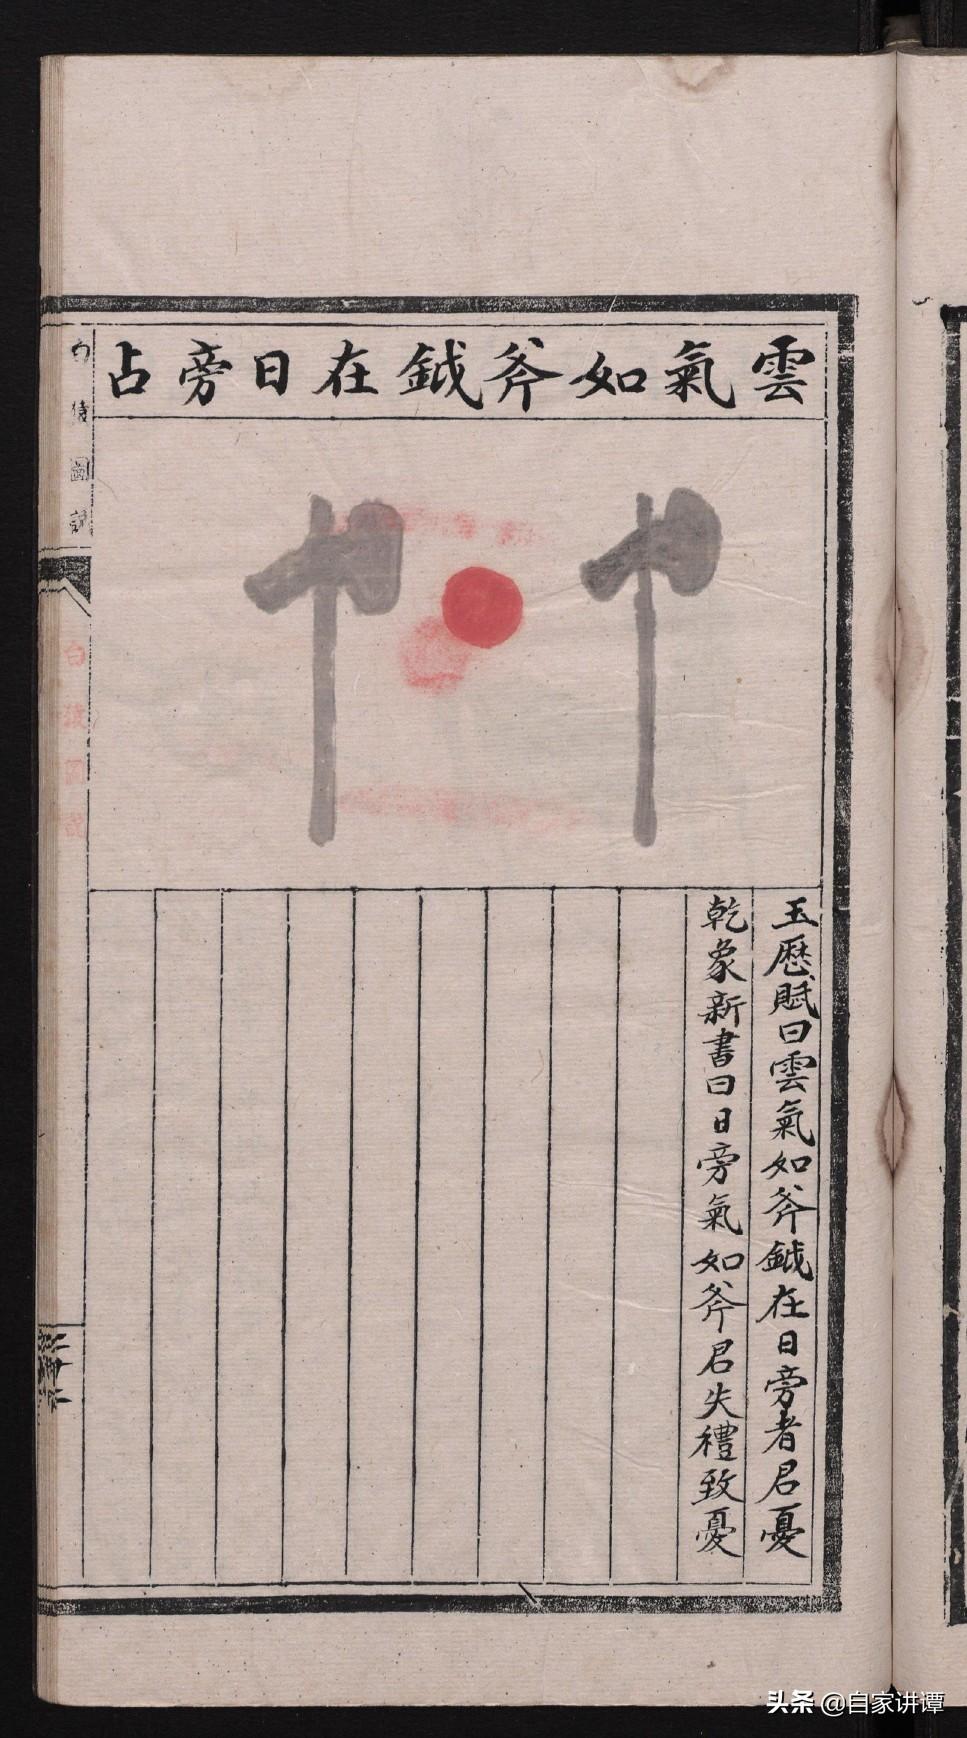 雲氣如斧鉞在日旁占
玉曆賦曰雲氣如斧鉞在日旁者君憂
乾象新書曰日旁氣如斧君失禮致憂
白猿圖說
白猿圖說
头条 @自家讲谭